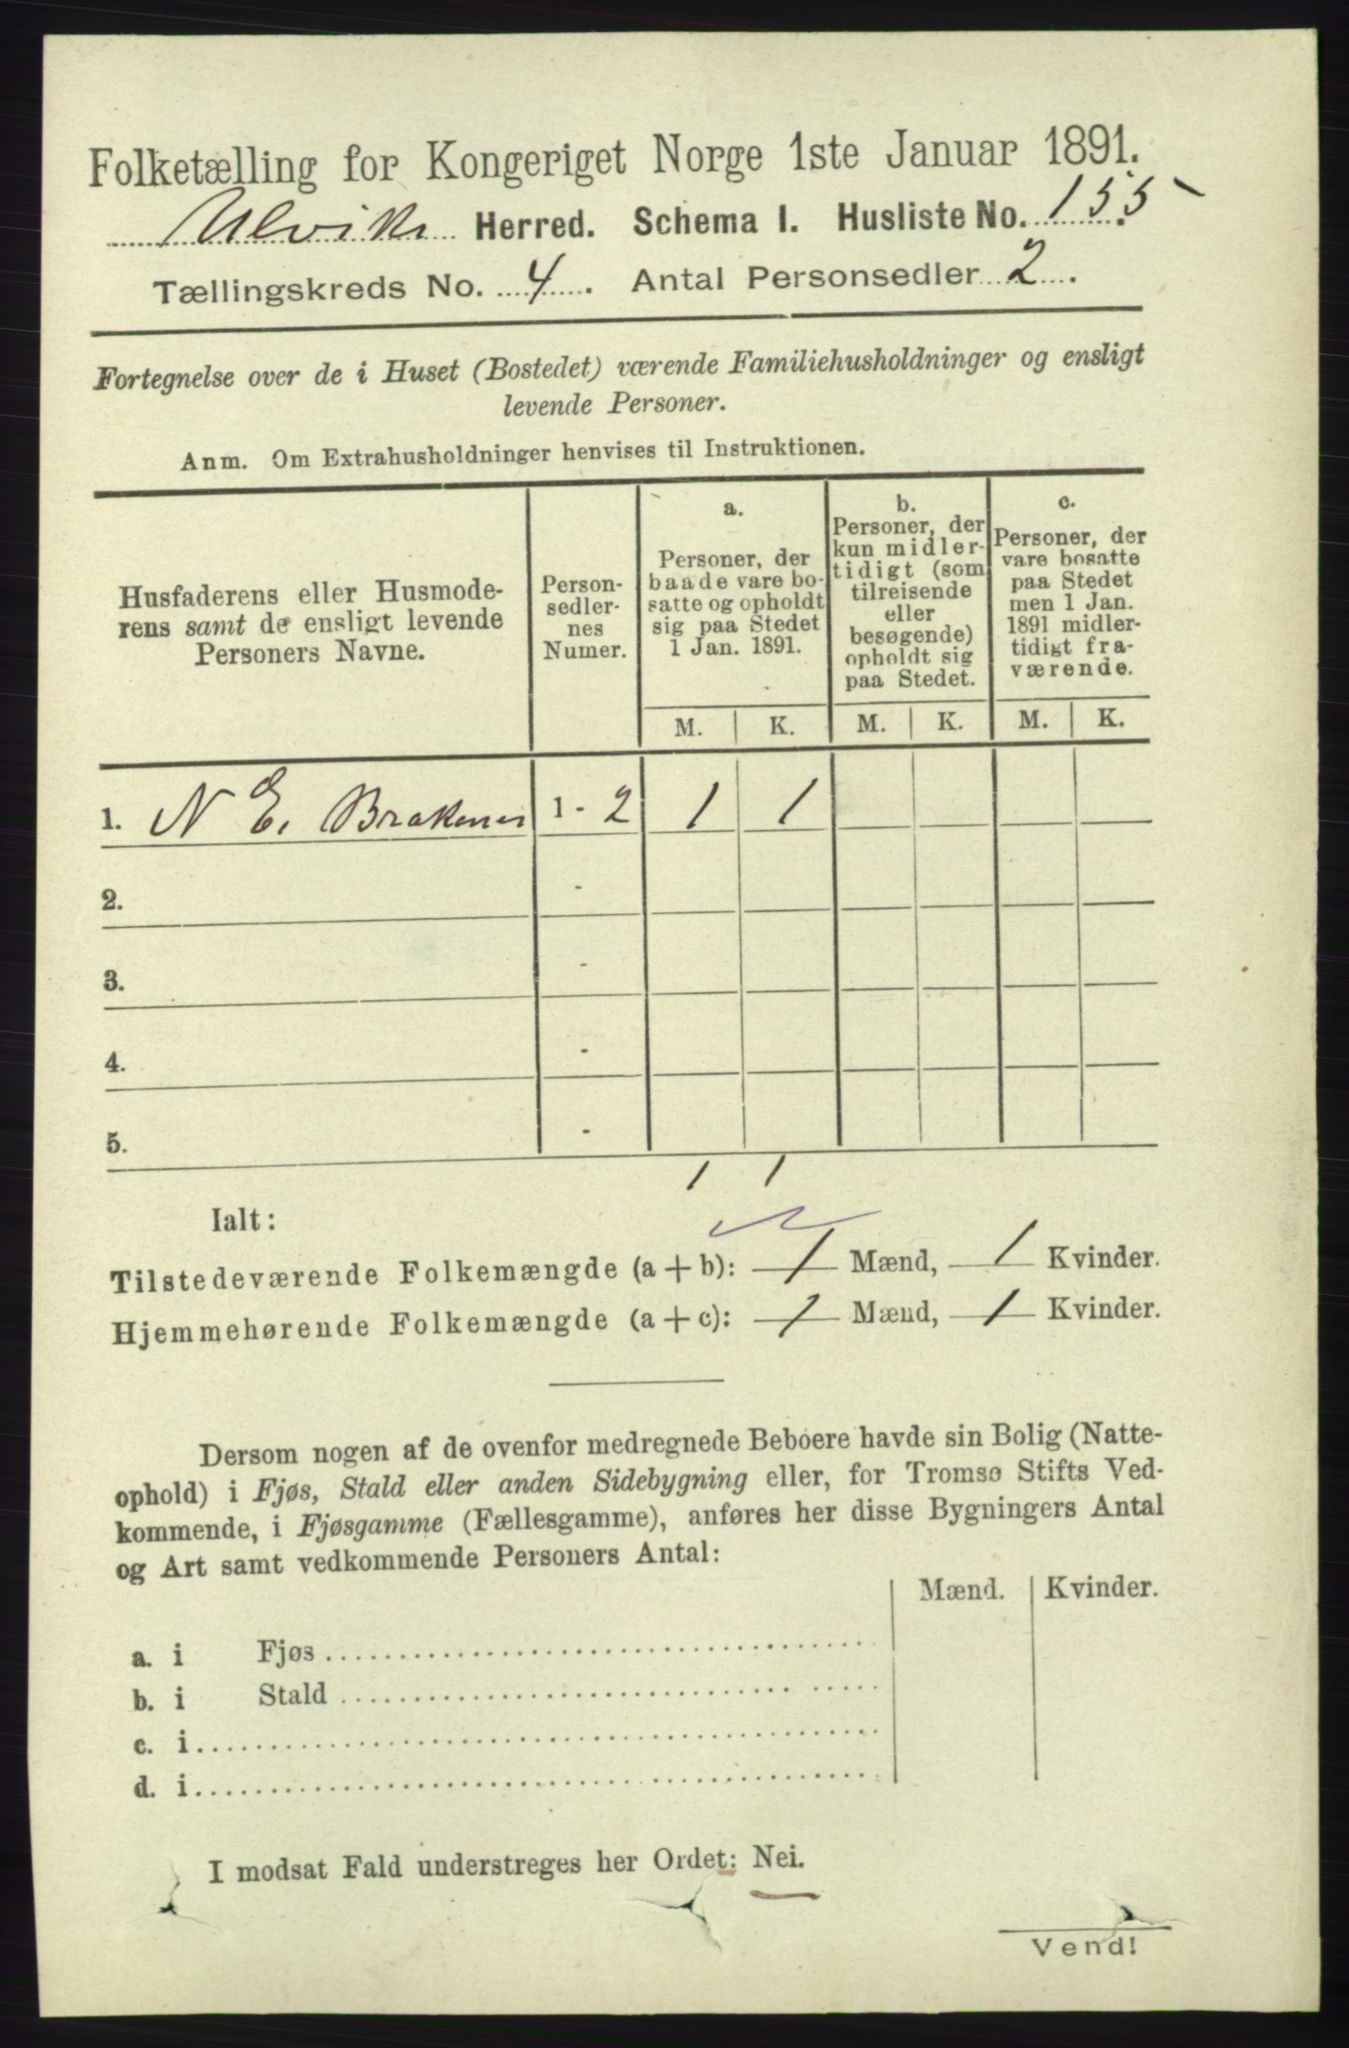 Folketælling for Kongeriget Norge 1ste Januar 1891.
Ulvik Herred. Schema I. Husliste No. 155.
Tællingskreds No. 4. Antal Personsedler 2.
Fortegnelse over de i Huset (Bostedet) værende Familiehusholdninger og ensligt
levende Personer.
Anm. Om Extrahusholdninger henvises til Instruktionen.
Husfaderens eller Husmode-
rens samt de ensligt levende
Personers Navne.
Person-
sedler-
nes
Numer.
a.
Personer, der
baade vare bo-
satte og opholdt
sig paa Stedet
1 Jan. 1891.
b.
Personer, der
kun midler-
tidigt (som
tilreisende
eller
besøgende)
opholdt sig
paa Stedet.
c.
Personer, der
vare bosatte
paa Stedet
men 1 Jan.
1891 midler-
tidigt fra-
værende.
M. K. M. K. M. K.
1. N E. Brakenes 1 - 2 1 1
2. -
3. -
4. -
5. -
1 1
Ialt:
Tilstedeværende Folkemængde (a + b): 1 Mænd, 1 Kvinder.
Hjemmehørende Folkemængde (a + c): 1 Mænd, 1 Kvinder.
Dersom nogen af de ovenfor medregnede Beboere havde sin Bolig (Natte-
ophold) i Fjøs, Stald eller anden Sidebygning eller, for Tromsø Stifts Ved-
kommende, i Fjøsgamme (Fællesgamme), anføres her disse Bygningers Antal
og Art samt vedkommende Personers Antal:
Mænd. Kvinder.
a. i Fjøs
b. i Stald
c. i
d. i
I modsat Fald understreges her Ordet: Nei.
Vend!